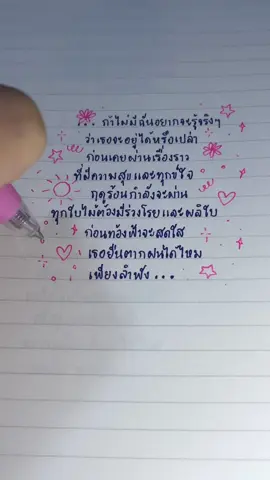 ... ถ้าไม่มีฉันอยากจะรู้จริงๆ
ว่าเธอจะอยู่ได้หรือเปล่า
ก่อนเคยผ่านเรื่องราว
ที่มีความสุขและทุกข์ใจ
ฤดูร้อนกำลังจะผ่าน
ทุกใบไม้ต้องมีร่วงโรยและผลิใบ
ก่อนท้องฟ้าจะสดใส
เธอยืนตากฝนได้ไหม
เพียงลำพัง ...